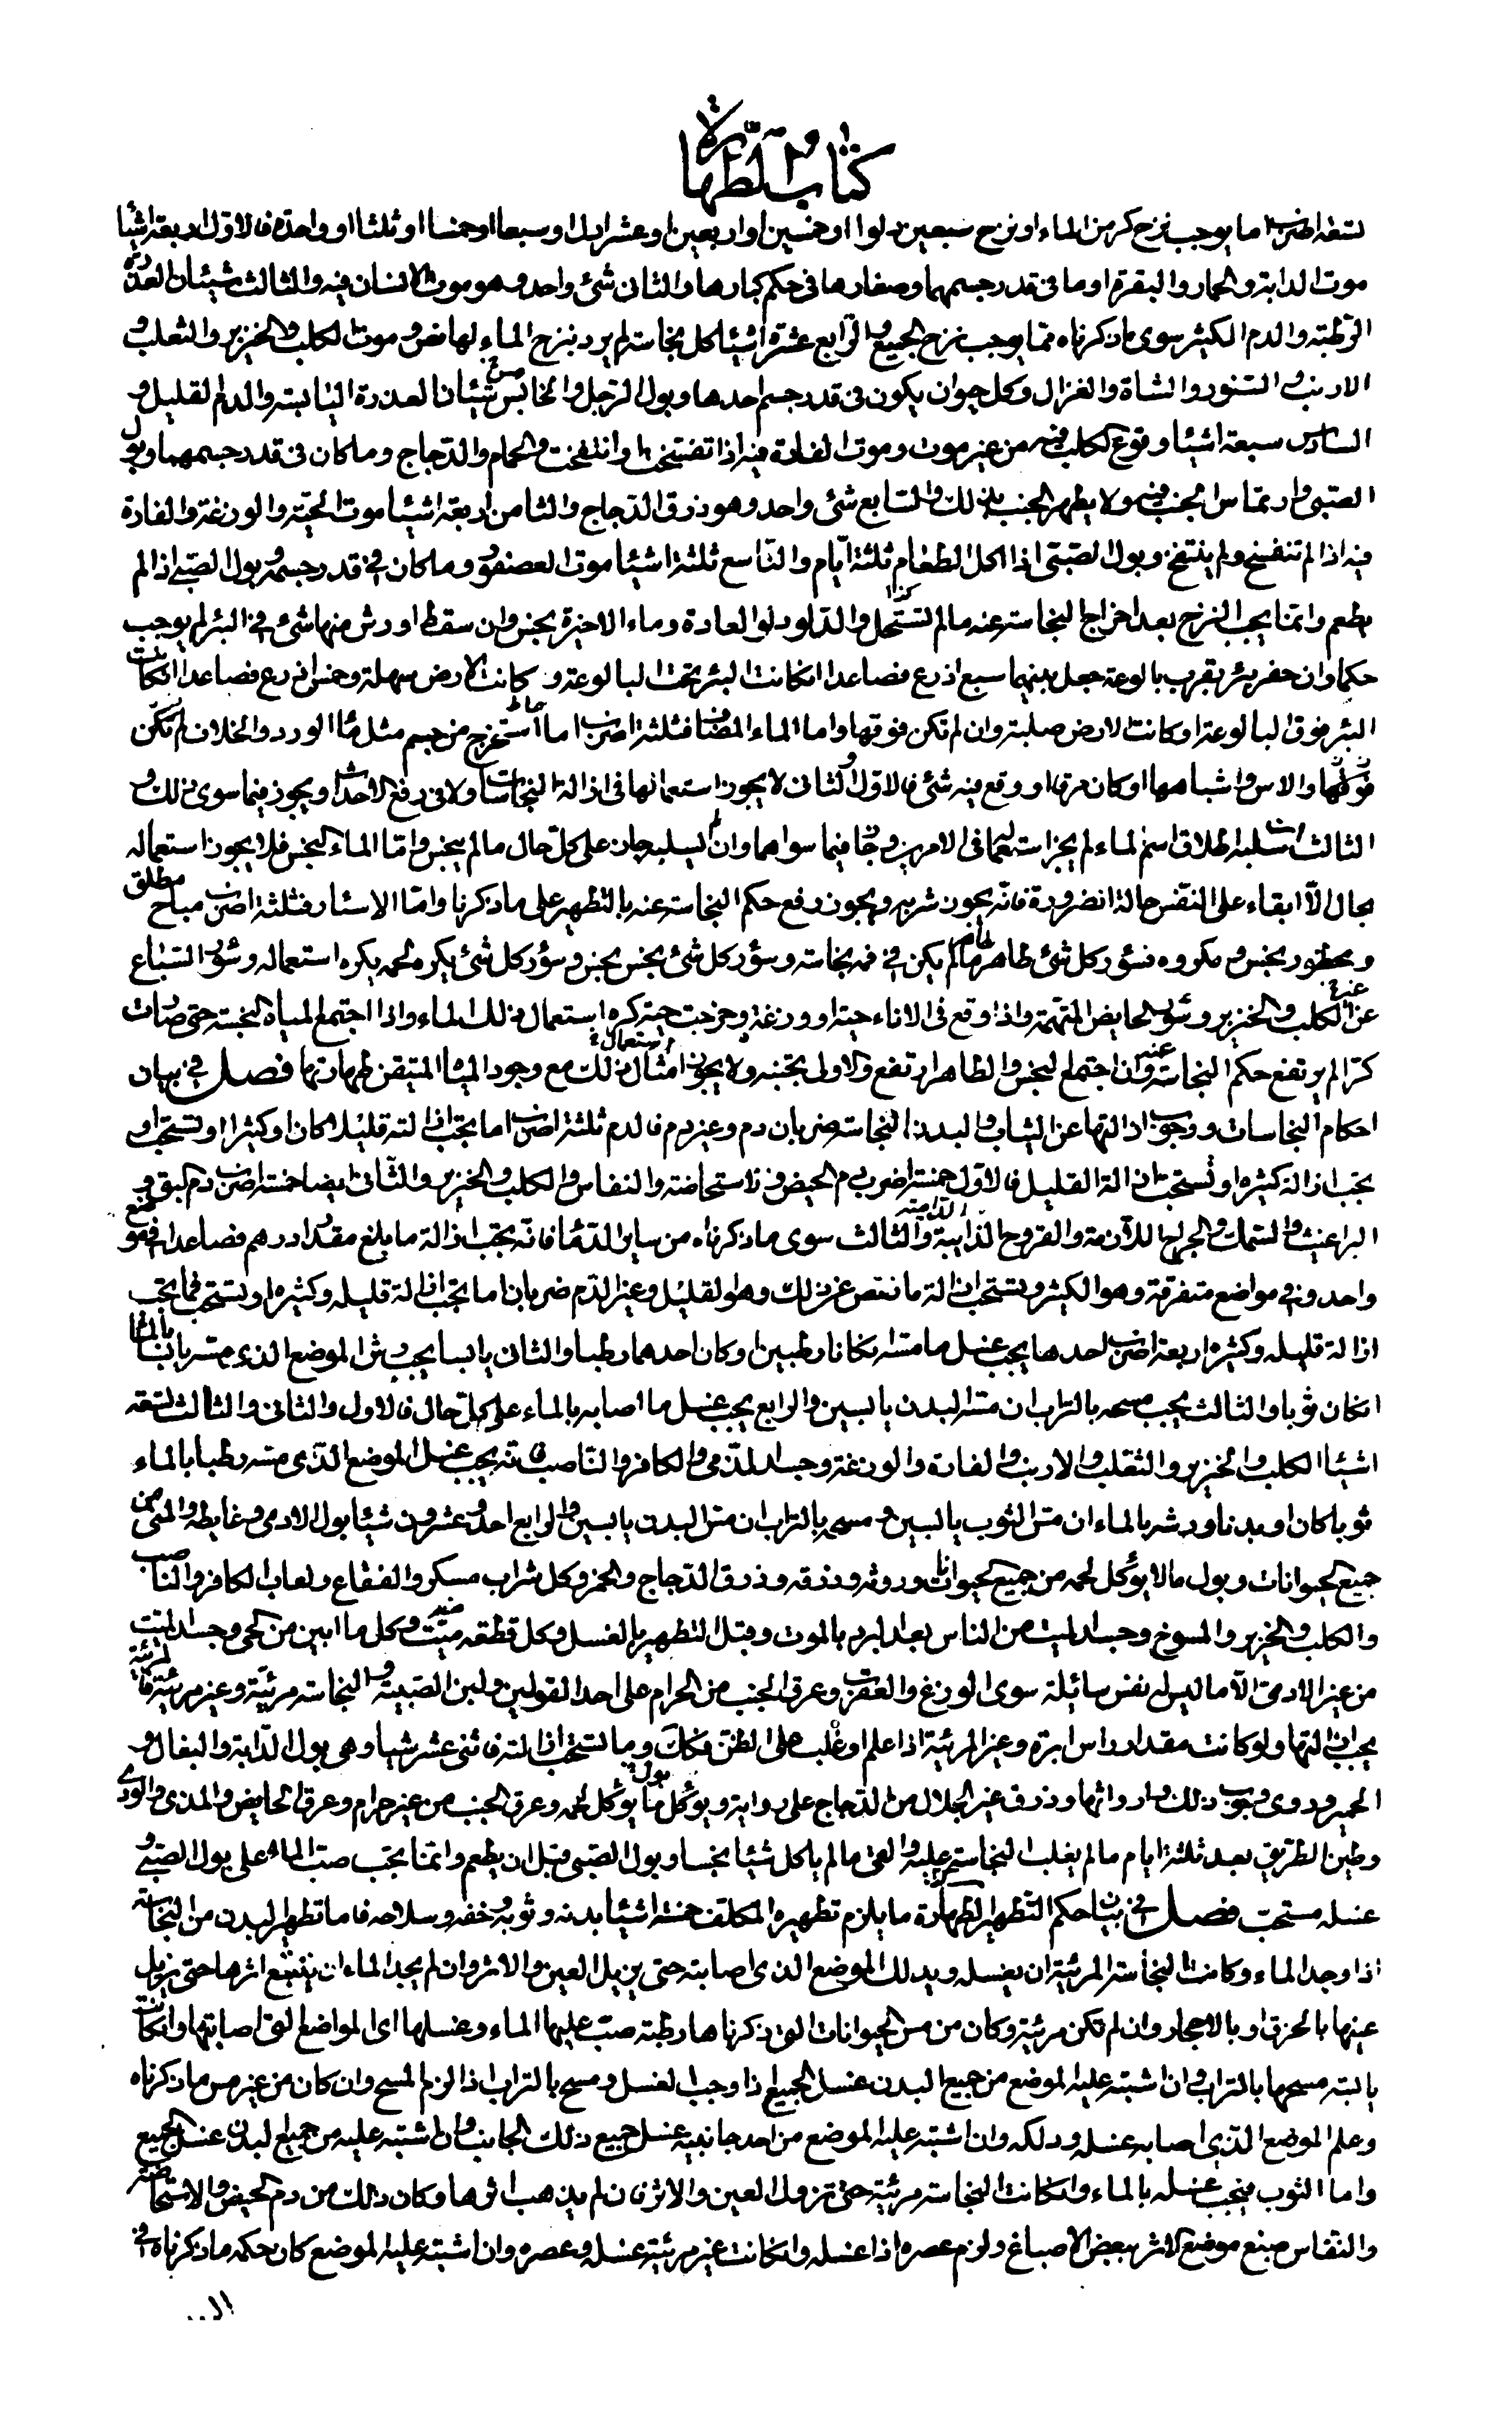 كتاب الطهارة
لتسعة اضرب اما يوجب نزح كر من الماء او نزح سبعين دلوا او خمسين او اربعين او عشرا بل او سبعا او خمسا او ثلثا او واحدة فالاول اربعة اشيا
موت الدابة والحمار والبقرة او ما فى قدر جسمهما وصغارها فى حكم كبارها والثانى شئ واحد وهو موت الانسان فيه والثالث شيئان العذرة
الرطبة والدم الكثير سوى ما ذكرناه مما يوجب نزح الجميع والرابع عشرة اشيا كل نجاسة لم يرد بنزح الماء لها نص وموت الكلب والخنزير والثعلب و
الارنب والسنور والشاة والغزال وكل حيوان يكون فى قدر جسم احدها وبول الرجل والخامس شيئان العذرة اليابسة والدم القليل و
السادس سبعة اشيا وقوع الكلب فيه من غير موت وموت الفارة فيه اذا تفسخت او انتفخت والحمام والدجاج وما كان فى قدر جسمهما وبول
الصبى وارتماس الجنب فيه ولا يطهر الجنب بذلك والسابع شئ واحد وهو ذرق الدجاج والثامن اربعة اشيا موت الحية والوزغة والفارة
فيه اذا لم تنفسخ ولم ينتفخ وبول الصبى اذا اكل الطعام ثلثة ايام والتاسع ثلثة اشيا موت العصفور وما كان فى قدر جسمه وبول الصبى اذا لم
يطعم وانما يجب النزح بعد اخراج النجاسة عنه ما لم تستحل والدلو دلو العادة وماء الاخيرة نجس وان سقط او رش منها شئ فى البئر لم يوجب
حكما وان حفر بئر بقرب بالوعة جعل بينهما سبع اذرع فصاعدا ان كانت البئر تحت البالوعة و كانت الارض سهلة وخمس اذرع فصاعدا ان كانت
البئر فوق البالوعة او كانت الارض صلبة وان لم تكن فوقها واما الماء المضاف فثلثة اضرب اما استخرج من جسم مثل ماء الورد والخلاف
والاس واشباهها او كان مرقا او وقع فيه شئ فالاول والثانى لا يجوز استعمالها فى ازالة النجاسات ولا فى رفع الاحداث ويجوز فيما سوى ذلك و
الثالث ان سلبه اطلاق اسم الماء لم يجز استعماله فى الامرين وجاز فيما سواهما وان لم يسلبه جاز على كل حال ما لم ينجس واما الماء النجس فلا يجوز استعماله
بحال الا ابقاء على النفس حالة الضرورة فانه يجوز شربه ويجوز رفع حكم النجاسة عنه بالتطهير على ما ذكرنا واما الاسئار فثلثة اضرب مباح مطلق
ومحظور نجس ومكروه فسؤر كل شئ طاهر طاهر ما لم يكن فى فمه نجاسة وسؤر كل شئ نجس نجس وسؤر كل شئ يكره لحمه يكره استعماله وسؤر السباع
غير الكلب والخنزير وسؤر الحايض المتهمة واذا وقع فى الاناء حية او وزغة وخرجت حية كره استعمال ذلك الماء واذا اجتمع المياه النجسة حتى صارت
كرا لم يرتفع حكم النجاسة عنه وان اجتمع النجس والطاهر ارتفع والاولى تجنبه ولا يجوز استعمال امثال ذلك مع وجود المياه المتيقن طهارتها فصل فى بيان
احكام النجاسات ووجوب ازالتها عن الثياب والبدن النجاسة ضربان دم وغير دم فالدم ثلثة اضرب اما يجب ازالته قليلا كان او كثيرا او تستحب او
يجب ازالة كثيره او تستحب ازالة القليل فالاول خمسة اضرب دم الحيض والاستحاضة والنفاس والكلب والخنزير والثانى ايضا خمسة اضرب دم البق و
البراغيث والسمك والجراح اللازمة والقروح الدامية والثالث سوى ما ذكرناه من ساير الدماء فانه يجب ازالة ما بلغ مقدار درهم فصاعدا فى موضع
واحد وفى مواضع متفرقة وهو الكثير ويستحب ازالة ما نقص عن ذلك وهو القليل وغير الدم ضربان اما يجب ازالة قليله وكثيره او يستحب فما يجب
ازالة قليله وكثيره اربعة اضرب احدها يجب غسل ما مسه ان كانا رطبين او كان احدهما رطبا والثانى يابسا يجب رش الموضع الذى مسه يابسا بالماء
ان كان ثوبا والثالث يجب مسحه بالتراب ان مس البدن يابسين والرابع يجب غسل ما اصابه بالماء على كل حال فالاول والثانى والثالث لتسعة
اشيا الكلب والخنزير والثعلب والارنب والفارة والوزغة وجسد الذمى والكافر والناصب فانه يجب غسل الموضع الذى مسه رطبا بالماء
ثوبا كان او بدنا ورشه بالماء ان مس الثوب يابسين ومسحه بالتراب ان مس البدن يابسين والرابع احد وعشرون شيئا بول الادمى وغايطه والمنى من
جميع الحيوانات وبول ما لا يؤكل لحمه من جميع الحيوانات وروثه وذرقه وذرق الدجاج والخمر وكل شراب مسكر والفقاع ولعاب الكافر والناصب
والكلب والخنزير والمسوخ وجسد الميت من الناس بعد البرد بالموت وقبل التطهير بالغسل وكل قطعة ميت وكل ما ابين من الحى وجسد الميت
من غير الادمى الا ما ليس له نفس سائلة سوى الوزغ والعقرب وعرق الجنب من الحرام على احد القولين ولبن الصبية والنجاسة مرئية وغير مرئية فالمرئية
يجب ازالتها ولو كانت مقدار راس ابرة وغير المرئية اذا علم او غلب على الظن فكذلك وما تستحب ازالته فاثنى عشر شيا وهى بول الدابة والبغال و
الحمير وروى وجوب ذلك وارواثها وذرق غير الجلال من الدجاج على رواية وبول ما يؤكل لحمه وعرق الجنب من غير حرام وعرق الحايض والمذى والودى
وطين الطريق بعد ثلثة ايام ما لم يغلب النجاسة عليه والقئ ما لم ياكل شيئا نجسا وبول الصبى قبل ان يطعم وانما يجب صب الماء على بول الصبى و
غسله مستحب فصل فى بيان حكم التطهير ما يلزم تطهيره المكلف خمسة اشيا بدنه وثوبه وخفه وسلاحه فاما تطهير البدن من النجاسة
اذا وجد الماء وكانت النجاسة المرئية ان يغسله ويدلك الموضع الذى اصابته حتى يزيل العين والاثر وان لم يجد الماء ان يتتبع اثرها حتى يزيل
عينها بالخرق او بالاحجار وان لم تكن مرئية وكان من مس الحيوانات التى ذكرناها رطبة صب عليها الماء وغسلها اى المواضع التى اصابتها وان كانت
يابسة مسحها بالتراب وان اشتبه عليه الموضع من جميع البدن غسل الجميع اذا وجب الغسل ومسح بالتراب اذا لزم المسح وان كان من غير مس ما ذكرناه
وعلم الموضع الذى اصابه غسله ودلكه وان اشتبه عليه الموضع من احد جانبيه غسل جميع ذلك الجانب وان اشتبه عليه من جميع البدن غسل الجميع
واما الثوب فيجب غسله بالماء وان كانت النجاسة مرئية حتى تزول العين والاثر فان لم يذهب اثرها وكان ذلك من دم الحيض والاستحاضة
والنفاس صبغ موضع الاثر ببعض الاصباغ ولزم عصره اذا غسله وان كانت غير مرئية غسله وعصره وان اشتبه عليه الموضع كان حكمه ما ذكرناه فى